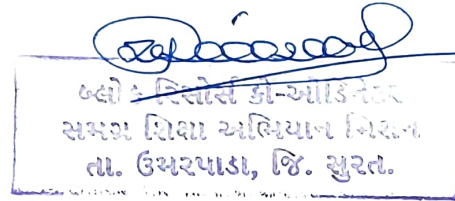 બ્લોક રિસોર્સ કો-ઓર્ડિનેટર
સમગ્ર શિક્ષા અભિયાન મિશન
તા. ઉમરપાડા, જિ. સુરત.